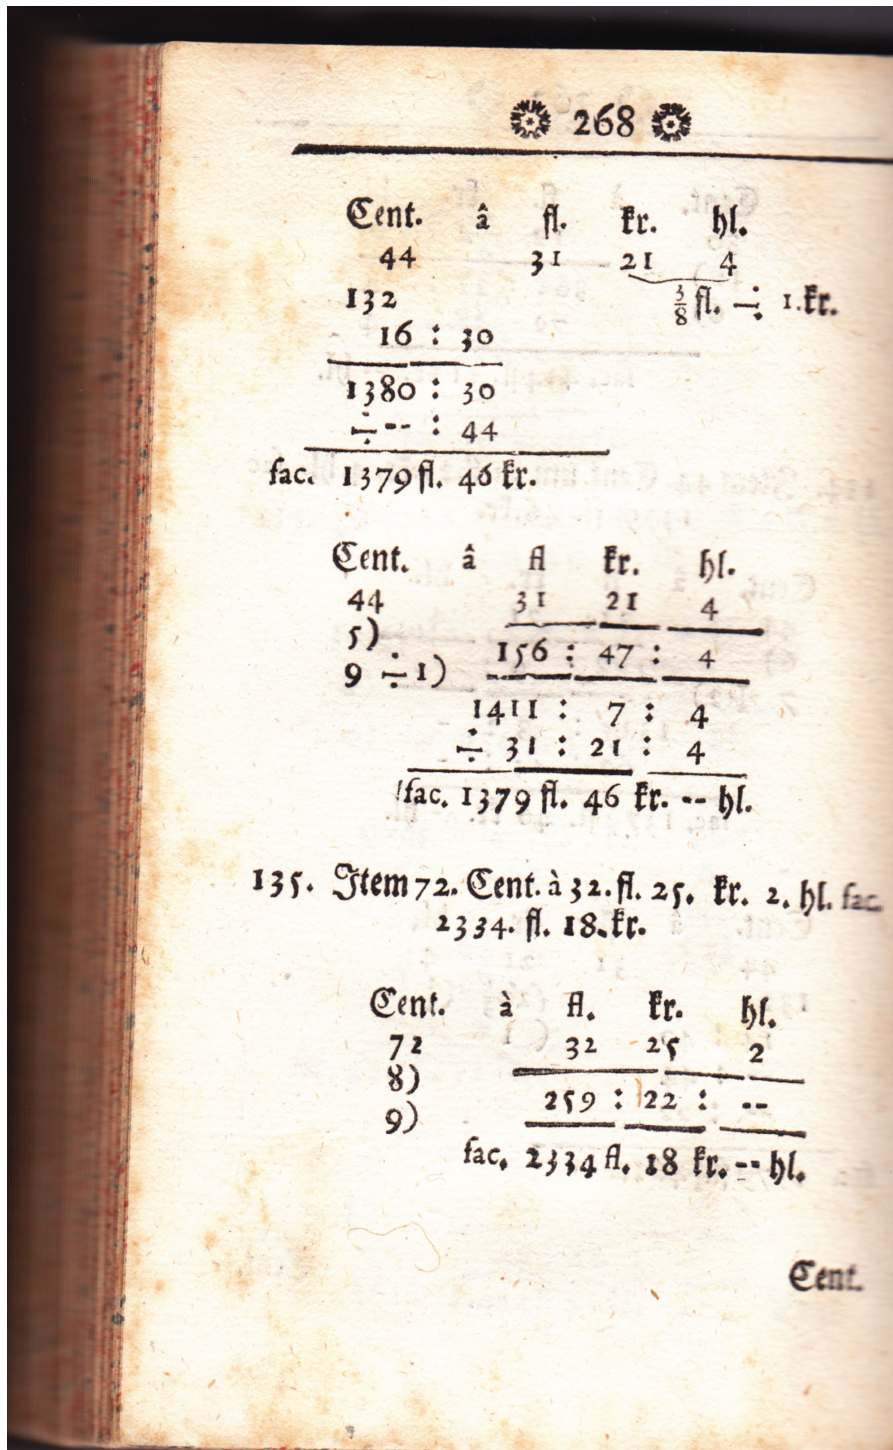 268
Cent. â fl. kr. hl.
44 31 21 4
132 3/8 fl. ÷ 1.kr.
16 : 30
1380 : 30
÷ -- : 44
fac. 1379 fl. 46 kr.
Cent. â fl kr. hl.
44 31 21 4
5) 156 : 47 : 4
9 ÷ 1)
1411 : 7 : 4
÷ 31 : 21 : 4
fac. 1379 fl. 46 kr. -- hl.
135. Item 72. Cent. à 32. fl. 25. kr. 2. hl. fac.
2334. fl. 18. kr.
Cent. à fl. kr. hl.
72 32 25 2
8)
9) 259 : 22 : --
fac. 2334 fl. 18 kr. -- hl.
Cent.